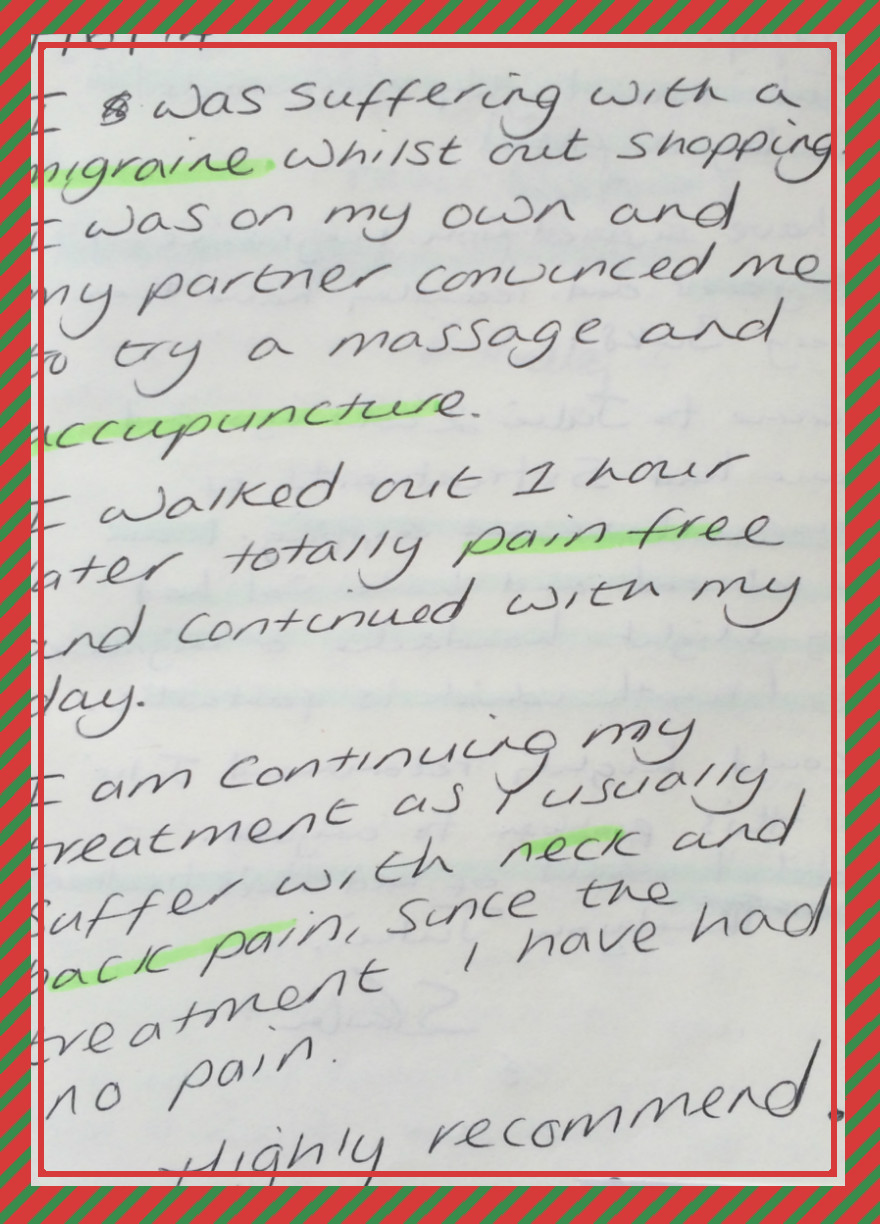 I was suffering with a
migraine whilst out shopping.
I was on my own and
my partner convinced me
to try a massage and
accupuncture.
I walked out 1 hour
later totally pain free
and continued with my
day.
I am continuing my
treatment as I usually
suffer with neck and
back pain, since the
treatment I have had
no pain.
Highly recommend.